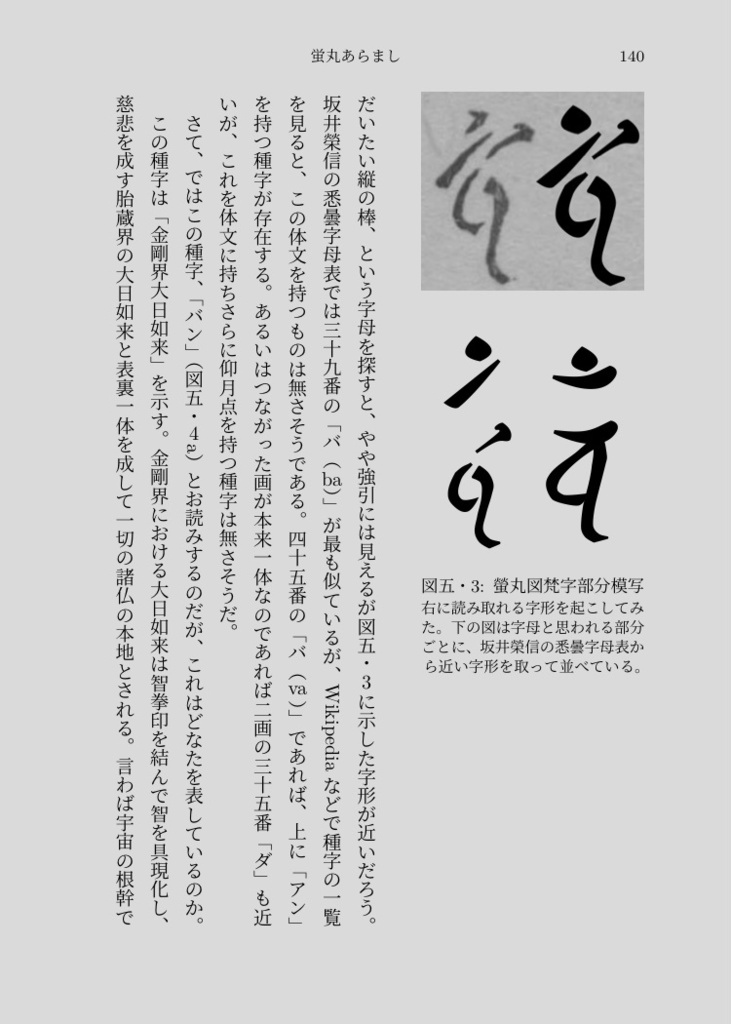 蛍丸あらまし
140
図五・3: 螢丸図梵字部分模写
右に読み取れる字形を起こしてみ
た。下の図は字母と思われる部分
ごとに、坂井榮信の悉曇字母表か
ら近い字形を取って並べている。
だいたい縦の棒、という字母を探すと、やや強引には見えるが図五・3に示した字形が近いだろう。
坂井榮信の悉曇字母表では三十九番の「バ（ba）」が最も似ているが、Wikipedia などで種字の一覧
を見ると、この体文を持つものは無さそうである。四十五番の「バ（va）」であれば、上に「アン」
を持つ種字が存在する。あるいはつながった画が本来一体なのであれば二画の三十五番「ダ」も近
いが、これを体文に持ちさらに仰月点を持つ種字は無さそうだ。
さて、ではこの種字、「バン」（図五・4a）とお読みするのだが、これはどなたを表しているのか。
この種字は「金剛界大日如来」を示す。金剛界における大日如来は智拳印を結んで智を具現化し、
慈悲を成す胎蔵界の大日如来と表裏一体を成して一切の諸仏の本地とされる。言わば宇宙の根幹で